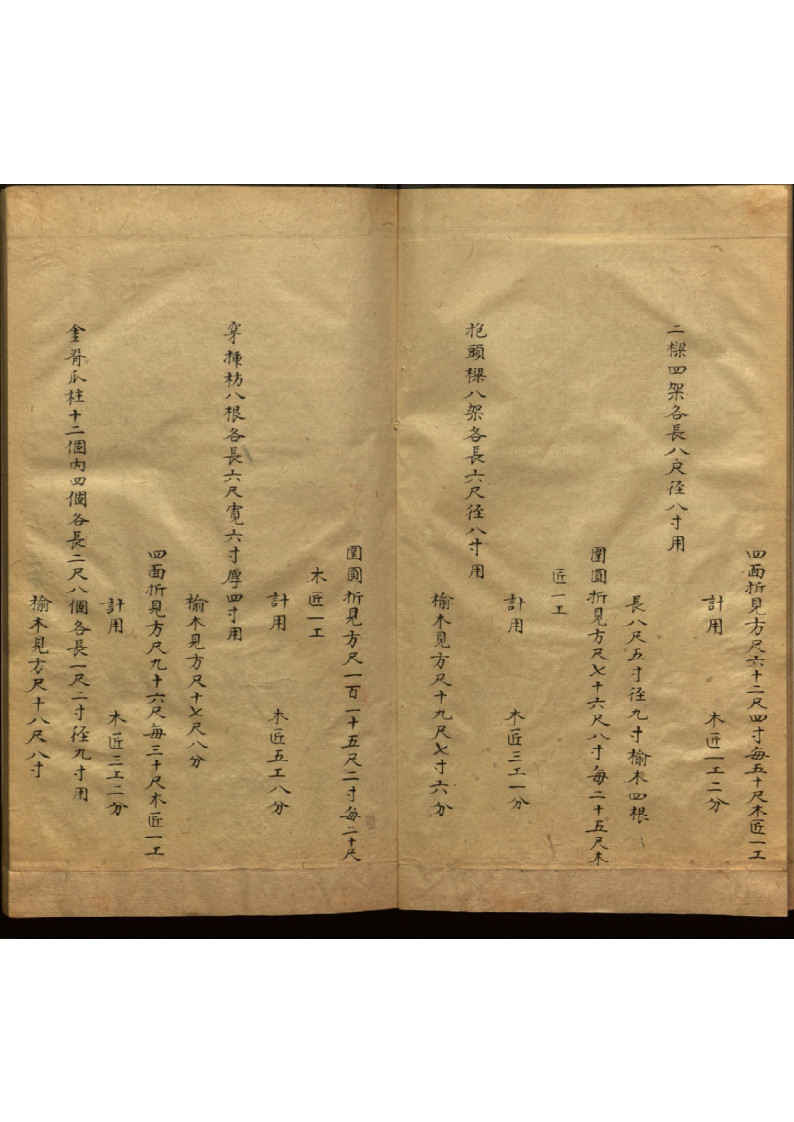 四面折見方尺六十二尺四寸每五十尺木匠一工
計用　木匠一工二分
二樑四架各長八尺徑八寸用
長八尺五寸徑九寸榆木四根
圍圓折見方尺七十六尺八寸每二十五尺木
匠一工
計用　木匠三工一分
抱頭樑八架各長六尺徑八寸用
榆木見方尺十九尺七寸六分
圍圓折見方尺一百一十五尺二寸每二十尺
木匠一工
計用　木匠五工八分
穿插枋八根各長六尺寬六寸厚四寸用
榆木見方尺十七尺八分
四面折見方尺九十六尺每三十尺木匠一工
計用　木匠三工二分
金脊瓜柱十二個內四個各長二尺八個各長一尺二寸徑九寸用
榆木見方尺十八尺八寸